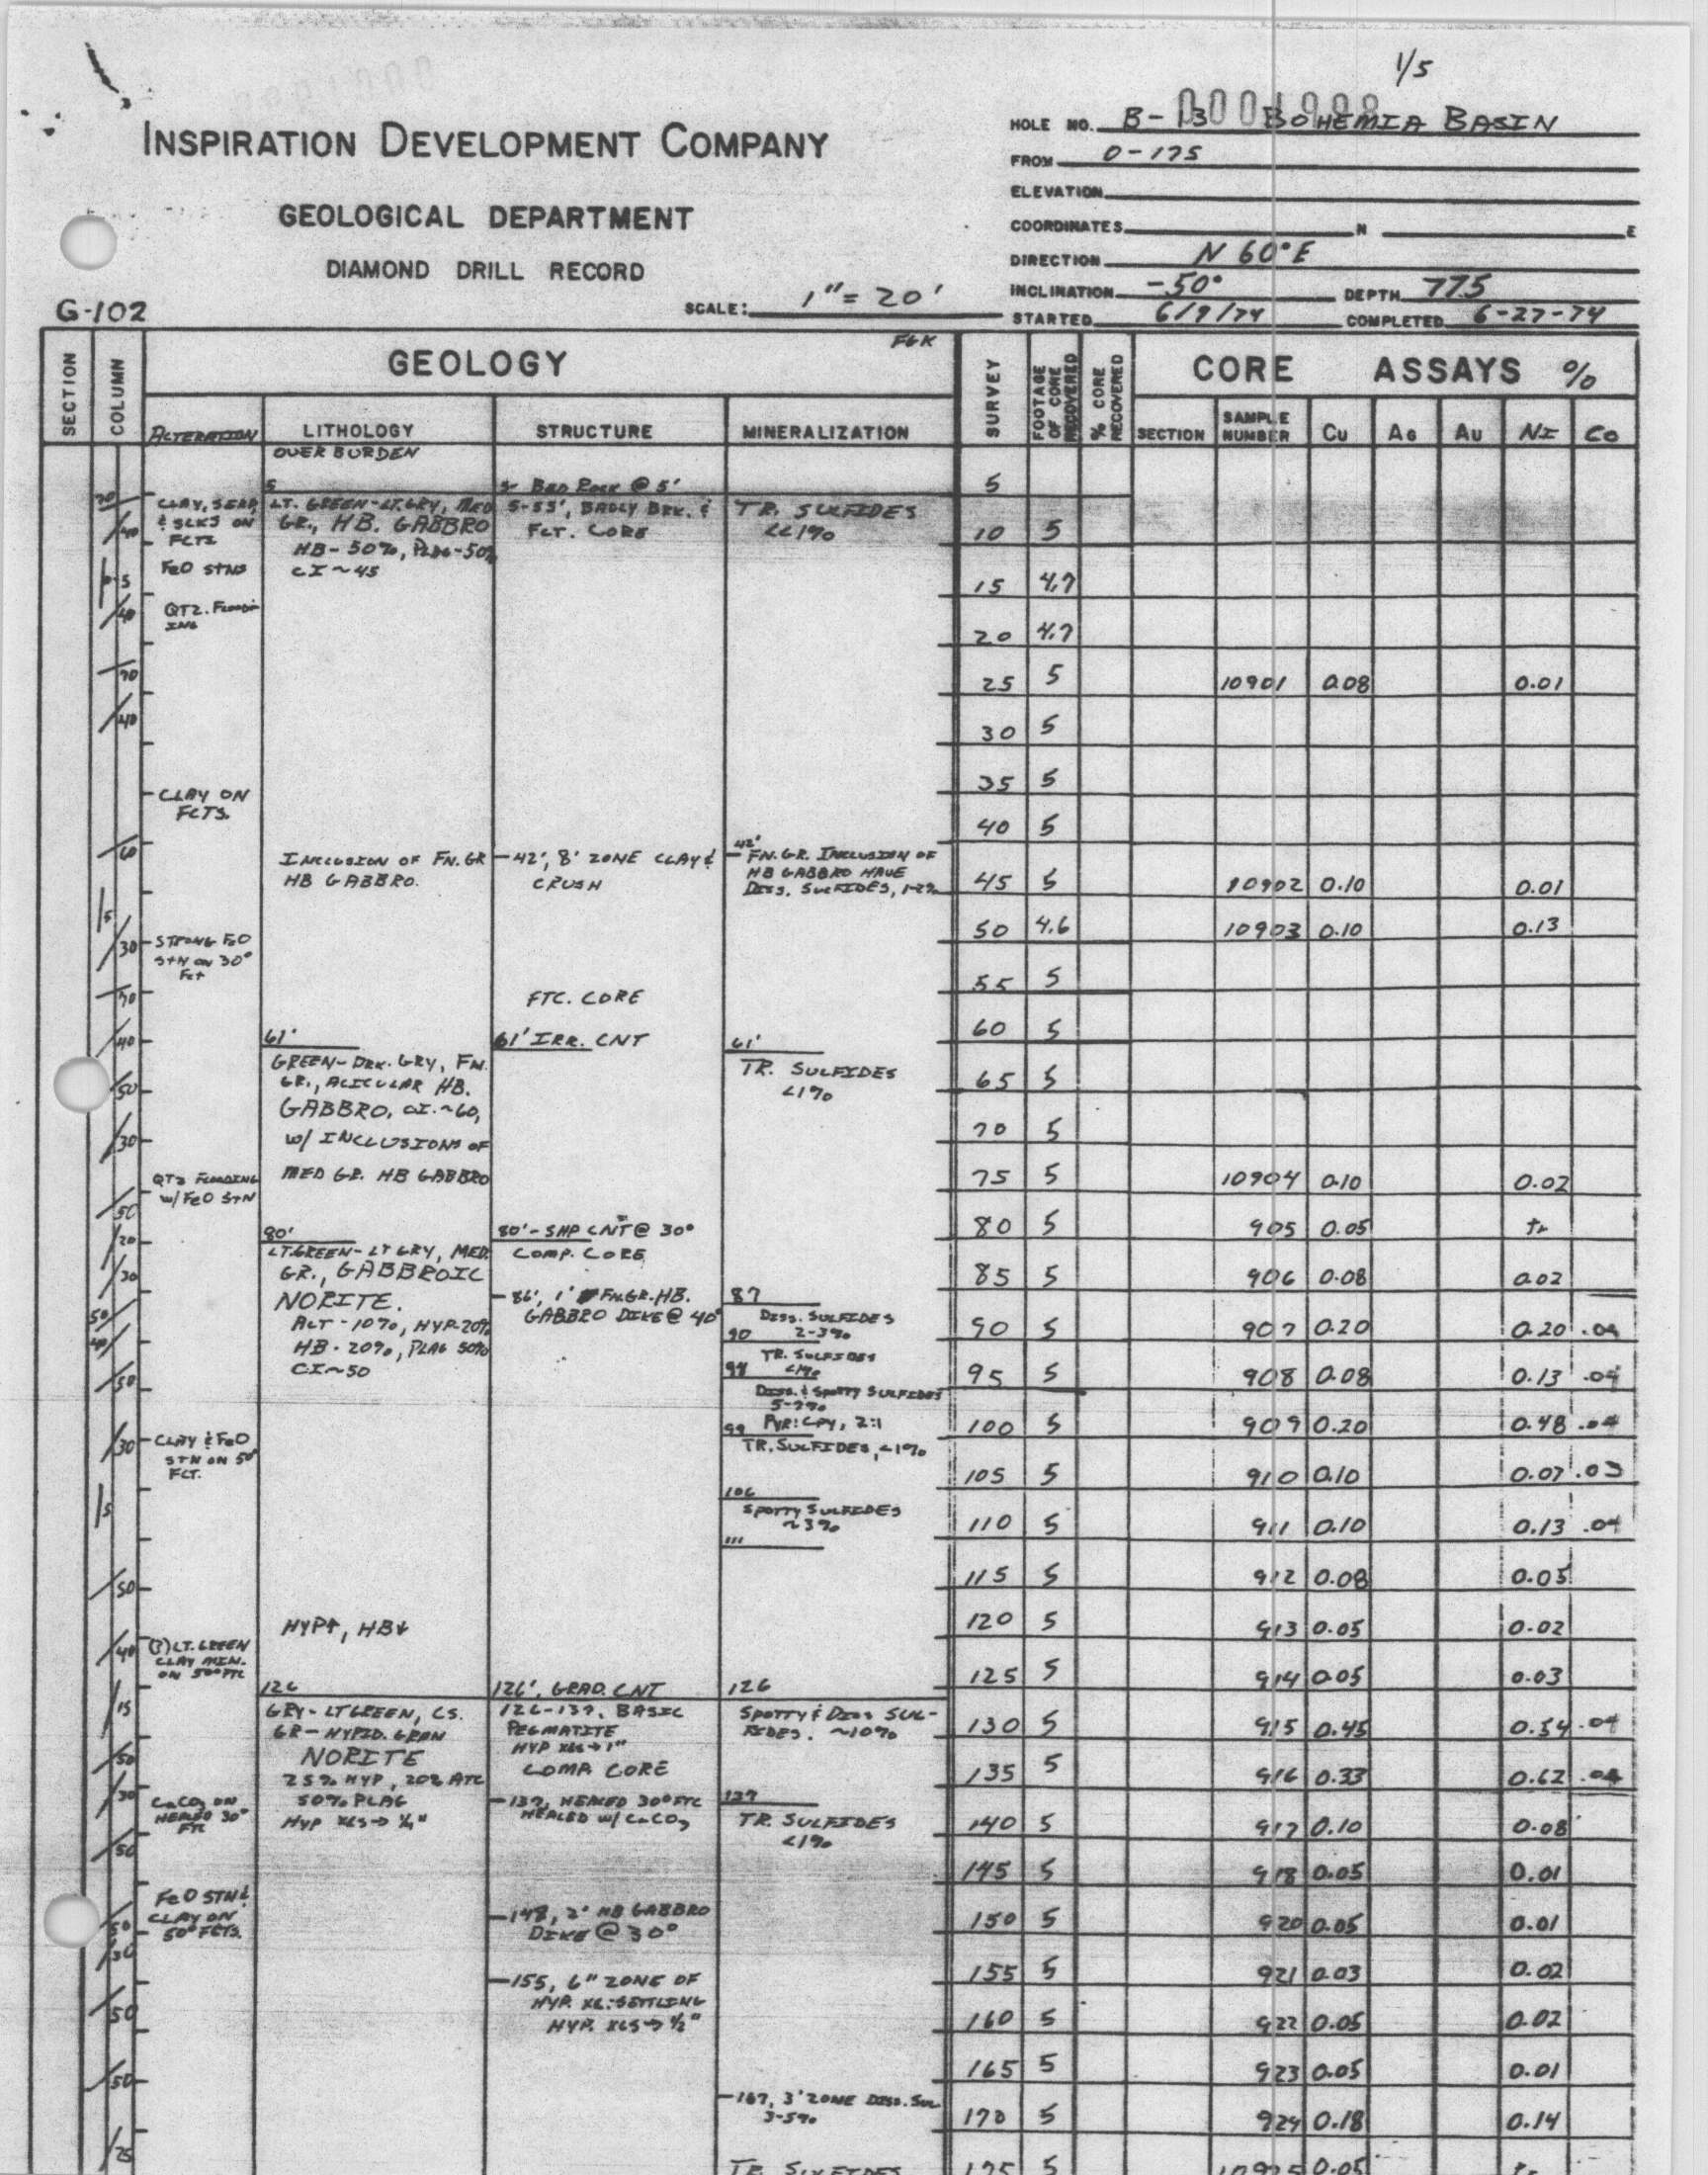 1/5
0001998
INSPIRATION DEVELOPMENT COMPANY
GEOLOGICAL DEPARTMENT
DIAMOND DRILL RECORD
G-102
SCALE: 1"= 20'
HOLE NO. B-13 BOHEMIA BASIN
FROM 0-175
ELEVATION
COORDINATES N E
DIRECTION N 60°E
INCLINATION -50° DEPTH 775
STARTED 6/9/74 COMPLETED 6-27-74
SECTION COLUMN GEOLOGY FGK SURVEY FOOTAGE OF CORE RECOVERED % CORE RECOVERED CORE ASSAYS %
ALTERATION LITHOLOGY STRUCTURE MINERALIZATION SECTION SAMPLE NUMBER Cu AG AU NI CO
OVER BURDEN
5 5- BED ROCK @ 5' 5
CLAY, SERP, LT. GREEN-LT.GRY, MED 5-55', BADLY BRK. & TR. SULFIDES
& SLKS ON GR., HB. GABBRO FCT. CORE <<1% 10 5
FCTS HB-50%, PLAG-50%
FeO STNS CI~45 15 4.7
QTZ. FLOOD-
ING 20 4.7
25 5 10901 0.08 0.01
30 5
35 5
CLAY ON
FCTS. 40 5
42'
INCLUSION OF FN.GR -42', 8' ZONE CLAY & FN.GR. INCLUSION OF
HB GABBRO. CRUSH HB GABBRO HAVE
DISS. SULFIDES, 1-2% 45 5 10902 0.10 0.01
50 4.6 10903 0.10 0.13
STRONG FeO
STN ON 30°
Fct 55 5
FTC. CORE
60 5
61' 61' IRR. CNT 61'
GREEN-DRK.GRY, FN. TR. SULFIDES
GR., ACICULAR HB. <1% 65 5
GABBRO, CI.~60,
W/ INCLUSIONS OF 70 5
MED GR. HB GABBRO
QTZ FLOODING
W/ FeO STN 75 5 10904 0.10 0.02
80' 80'-SHP CNT @ 30° 80 5 905 0.05 tr
LT.GREEN-LT GRY, MED. COMP. CORE
GR., GABBROIC 85 5 906 0.08 0.02
NORITE. -86', 1' FN.GR.HB. 87
GABBRO DIKE @ 40° DISS. SULFIDES
2-3% 90 5 907 0.20 0.20 .04
HYP-20% 90
HB-20%, PLAG 50% TR. SULFIDES
CI~50 <1% 95 5 908 0.08 0.13 .04
94
DISS. & SPOTTY SULFIDES
5-7%
PYR:CPY, 2:1 100 5 909 0.20 0.48 .04
99
TR. SULFIDES, <1%
CLAY & FeO
STN ON 50°
FCT. 105 5 910 0.10 0.07 .03
106
SPOTTY SULFIDES
~3% 110 5 911 0.10 0.13 .04
111
115 5 912 0.08 0.05
HYP↑, HB↓ 120 5 913 0.05 0.02
(?) LT. GREEN
CLAY MIN.
ON 50° FTC 125 5 914 0.05 0.03
126 126', GRAD. CNT 126
GRY-LT GREEN, CS. 126-137, BASIC SPOTTY & DISS SUL-
GR-HYPID. GRAN PEGMATITE FIDES. ~10% 130 5 915 0.45 0.54 .04
NORITE HYP XLS→1"
25% HYP, 20% COMP. CORE 135 5 916 0.33 0.62 .04
50% PLAG
HYP XLS→¼"
CaCO3 ON -137, HEALED 30° FTC 137
HEALED 30° HEALED W/ CaCO3 TR. SULFIDES
FTC <1% 140 5 917 0.10 0.08
145 5 918 0.05 0.01
FeO STN &
CLAY ON
50° FCTS. -148, 2' HB GABBRO
DIKE @ 30° 150 5 920 0.05 0.01
-155, 6" ZONE OF 155 5 921 0.03 0.02
HYP. XL. SETTLING
HYP. XLS→½" 160 5 922 0.05 0.02
165 5 923 0.05 0.01
-167, 3' ZONE DISS. SUL.
3-5% 170 5 924 0.18 0.14
TR. SULFIDES 175 5 10925 0.05